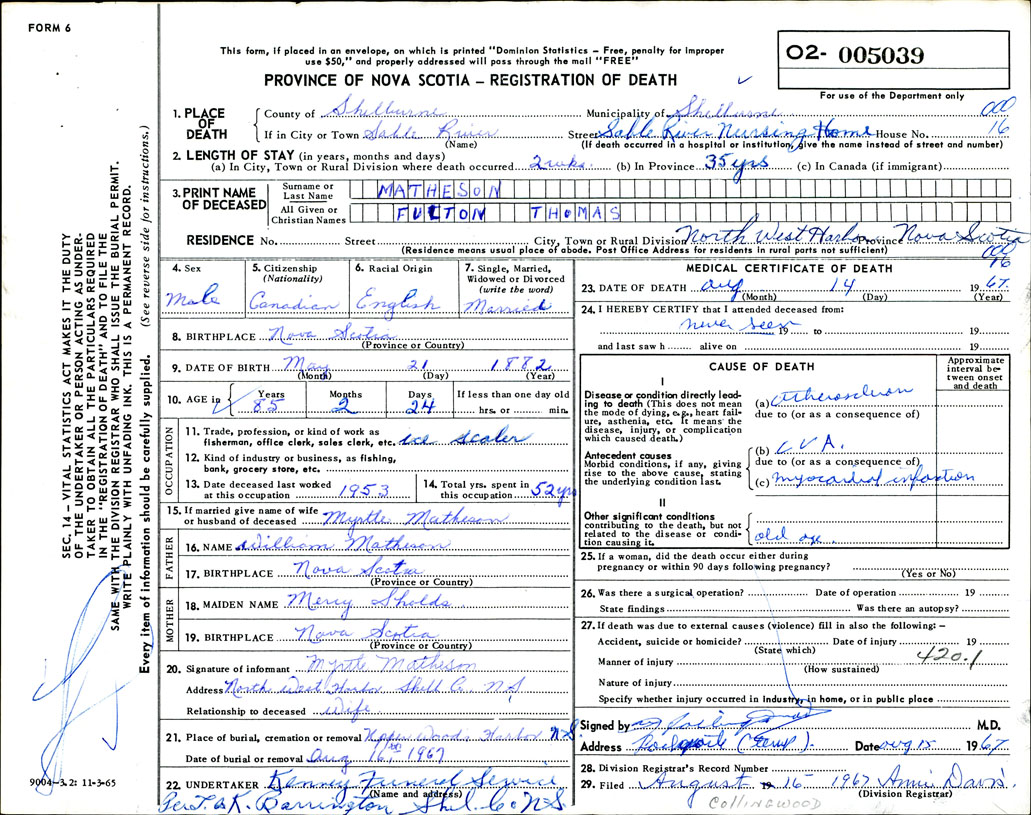 FORM 6
This form, if placed in an envelope, on which is printed "Dominion Statistics – Free, penalty for improper
use $50," and properly addressed will pass through the mail "FREE"
PROVINCE OF NOVA SCOTIA – REGISTRATION OF DEATH
O2- 005039
For use of the Department only
1. PLACE OF DEATH { County of Shelburne Municipality of Shelburne
If in City or Town Sable River Street Sable River Nursing Home House No. 16
(Name) (If death occurred in a hospital or institution, give the name instead of street and number)
2. LENGTH OF STAY (in years, months and days)
(a) In City, Town or Rural Division where death occurred 2 wks. (b) In Province 35 yrs (c) In Canada (if immigrant)
3. PRINT NAME OF DECEASED { Surname or Last Name MATHESON
All Given or Christian Names FULTON THOMAS
RESIDENCE No. Street City, Town or Rural Division North West Harbor Province Nova Scotia
(Residence means usual place of abode. Post Office Address for residents in rural parts not sufficient)
16
SEC. 14 – VITAL STATISTICS ACT MAKES IT THE DUTY
OF THE UNDERTAKER OR PERSON ACTING AS UNDER-
TAKER TO OBTAIN ALL THE PARTICULARS REQUIRED
IN THE "REGISTRATION OF DEATH" AND TO FILE THE
SAME WITH THE DIVISION REGISTRAR WHO SHALL ISSUE THE BURIAL PERMIT.
WRITE PLAINLY WITH UNFADING INK. THIS IS A PERMANENT RECORD.
Every item of information should be carefully supplied. (See reverse side for instructions.)
4. Sex Male
5. Citizenship (Nationality) Canadian
6. Racial Origin English
7. Single, Married, Widowed or Divorced (write the word) Married
8. BIRTHPLACE Nova Scotia
(Province or Country)
9. DATE OF BIRTH May 21 1882
(Month) (Day) (Year)
10. AGE in { Years 85 Months 2 Days 24 If less than one day old
hrs. or min.
OCCUPATION
11. Trade, profession, or kind of work as
fisherman, office clerk, sales clerk, etc. ice scaler
12. Kind of industry or business, as fishing,
bank, grocery store, etc.
13. Date deceased last worked at this occupation 1953
14. Total yrs. spent in this occupation 52 yrs
15. If married give name of wife
or husband of deceased Myrtle Matheson
FATHER
16. NAME William Matheson
17. BIRTHPLACE Nova Scotia
(Province or Country)
MOTHER
18. MAIDEN NAME Mercy Sholds
19. BIRTHPLACE Nova Scotia
(Province or Country)
20. Signature of informant Myrtle Matheson
Address North West Harbor Shell Co. N S
Relationship to deceased Wife
21. Place of burial, cremation or removal Upper Woods Harbor N S
Date of burial or removal Aug 16th 1967
22. UNDERTAKER Kenney Funeral Service
(Name and address)
Per T. A K. Barrington Shel. Co. N S.
MEDICAL CERTIFICATE OF DEATH
23. DATE OF DEATH Aug 14 1967.
(Month) (Day) (Year)
24. I HEREBY CERTIFY that I attended deceased from:
never seen 19 to 19
and last saw h alive on 19
CAUSE OF DEATH
Approximate interval be-tween onset and death
I
Disease or condition directly lead-
ing to death (This does not mean
the mode of dying, e.g., heart fail-
ure, asthenia, etc. It means the
disease, injury, or complication
which caused death.)
(a)
due to (or as a consequence of)
Antecedent causes
Morbid conditions, if any, giving
rise to the above cause, stating
the underlying condition last.
(b) C.V.A.
due to (or as a consequence of)
(c) myocardial infarction
II
Other significant conditions
contributing to the death, but not
related to the disease or condi-
tion causing it.
old age
25. If a woman, did the death occur either during
pregnancy or within 90 days following pregnancy?
(Yes or No)
26. Was there a surgical operation? Date of operation 19
State findings Was there an autopsy?
27. If death was due to external causes (violence) fill in also the following: –
Accident, suicide or homicide? Date of injury 19
(State which)
420.1
Manner of injury
(How sustained)
Nature of injury
Specify whether injury occurred in industry, in home, or in public place
Signed by M.D.
Address Date Aug 15 1967
28. Division Registrar's Record Number
29. Filed August 16 1967 Annie Davis.
(Division Registrar)
COLLINGWOOD
9004–3.2: 11-3-65